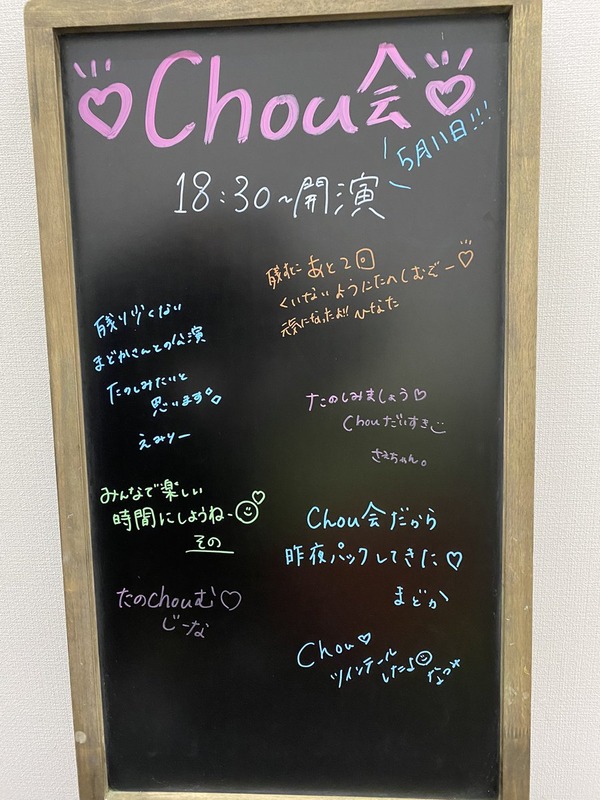 ♡Chou会♡
5月11日!!!
18:30~開演
残すにあと2回
くいないようにたのしむぞー♡
元気になったよ!! ひなた
残り少くない
まどかさんとの公演
たのしみたいと
思います
えみりー
たのしみましょう♡
Chouだいすき
さえちゃん。
みんなで楽しい
時間にしようねー
その
Chou会だから
昨夜パックしてきた♡
まどか
たのchouむ♡
じーな
Chou♡
ツインテール
した♪
なつ